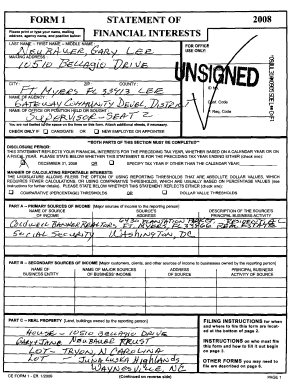 FORM 1 STATEMENT OF 2008
Please print or type your name, mailing address, agency name, and position below:
FINANCIAL INTERESTS
LAST NAME – FIRST NAME – MIDDLE NAME :
NEUBAUER GARY LEE
FOR OFFICE USE ONLY:
MAILING ADDRESS :
10510 BELLAGIO DRIVE
UNSIGNED
CITY : ZIP : COUNTY :
FT MYERS FL 33913 LEE
NAME OF AGENCY :
GATEWAY COMMUNITY DEVEL DISTRICT
ID No.
Conf. Code
NAME OF OFFICE OR POSITION HELD OR SOUGHT :
SUPERVISOR - SEAT 2
P. Req. Code
You are not limited to the space on the lines on this form. Attach additional sheets, if necessary.
CHECK ONLY IF CANDIDATE OR NEW EMPLOYEE OR APPOINTEE
**BOTH PARTS OF THIS SECTION MUST BE COMPLETED**
DISCLOSURE PERIOD:
THIS STATEMENT REFLECTS YOUR FINANCIAL INTERESTS FOR THE PRECEDING TAX YEAR, WHETHER BASED ON A CALENDAR YEAR OR ON A FISCAL YEAR. PLEASE STATE BELOW WHETHER THIS STATEMENT IS FOR THE PRECEDING TAX YEAR ENDING EITHER (check one):
DECEMBER 31, 2008 OR SPECIFY TAX YEAR IF OTHER THAN THE CALENDAR YEAR:
MANNER OF CALCULATING REPORTABLE INTERESTS:
THE LEGISLATURE ALLOWS FILERS THE OPTION OF USING REPORTING THRESHOLDS THAT ARE ABSOLUTE DOLLAR VALUES, WHICH REQUIRES FEWER CALCULATIONS, OR USING COMPARATIVE THRESHOLDS, WHICH ARE USUALLY BASED ON PERCENTAGE VALUES (see instructions for further details). PLEASE STATE BELOW WHETHER THIS STATEMENT REFLECTS EITHER (check one):
COMPARATIVE (PERCENTAGE) THRESHOLDS OR DOLLAR VALUE THRESHOLDS
PART A -- PRIMARY SOURCES OF INCOME [Major sources of income to the reporting person]
NAME OF SOURCE OF INCOME SOURCE'S ADDRESS DESCRIPTION OF THE SOURCE'S PRINCIPAL BUSINESS ACTIVITY
COLDWELL BANKER REALTORS FT. MYERS, FL 33966 REAL ESTATE
SOCIAL SECURITY WASHINGTON, DC
PART B -- SECONDARY SOURCES OF INCOME [Major customers, clients, and other sources of income to businesses owned by the reporting person]
NAME OF BUSINESS ENTITY NAME OF MAJOR SOURCES OF BUSINESS' INCOME ADDRESS OF SOURCE PRINCIPAL BUSINESS ACTIVITY OF SOURCE
PART C -- REAL PROPERTY [Land, buildings owned by the reporting person]
HOUSE - 10510 BELLAGIO DRIVE
GARY & JANE NEUBAUER TRUST
LOT - TRYON, N CAROLINA
LOT - JUNALUSKA HIGHLANDS
WAYNESVILLE, NC
FILING INSTRUCTIONS for when and where to file this form are located at the bottom of page 2.
INSTRUCTIONS on who must file this form and how to fill it out begin on page 3.
OTHER FORMS you may need to file are described on page 6.
CE FORM 1 - Eff. 1/2009 (Continued on reverse side) PAGE 1